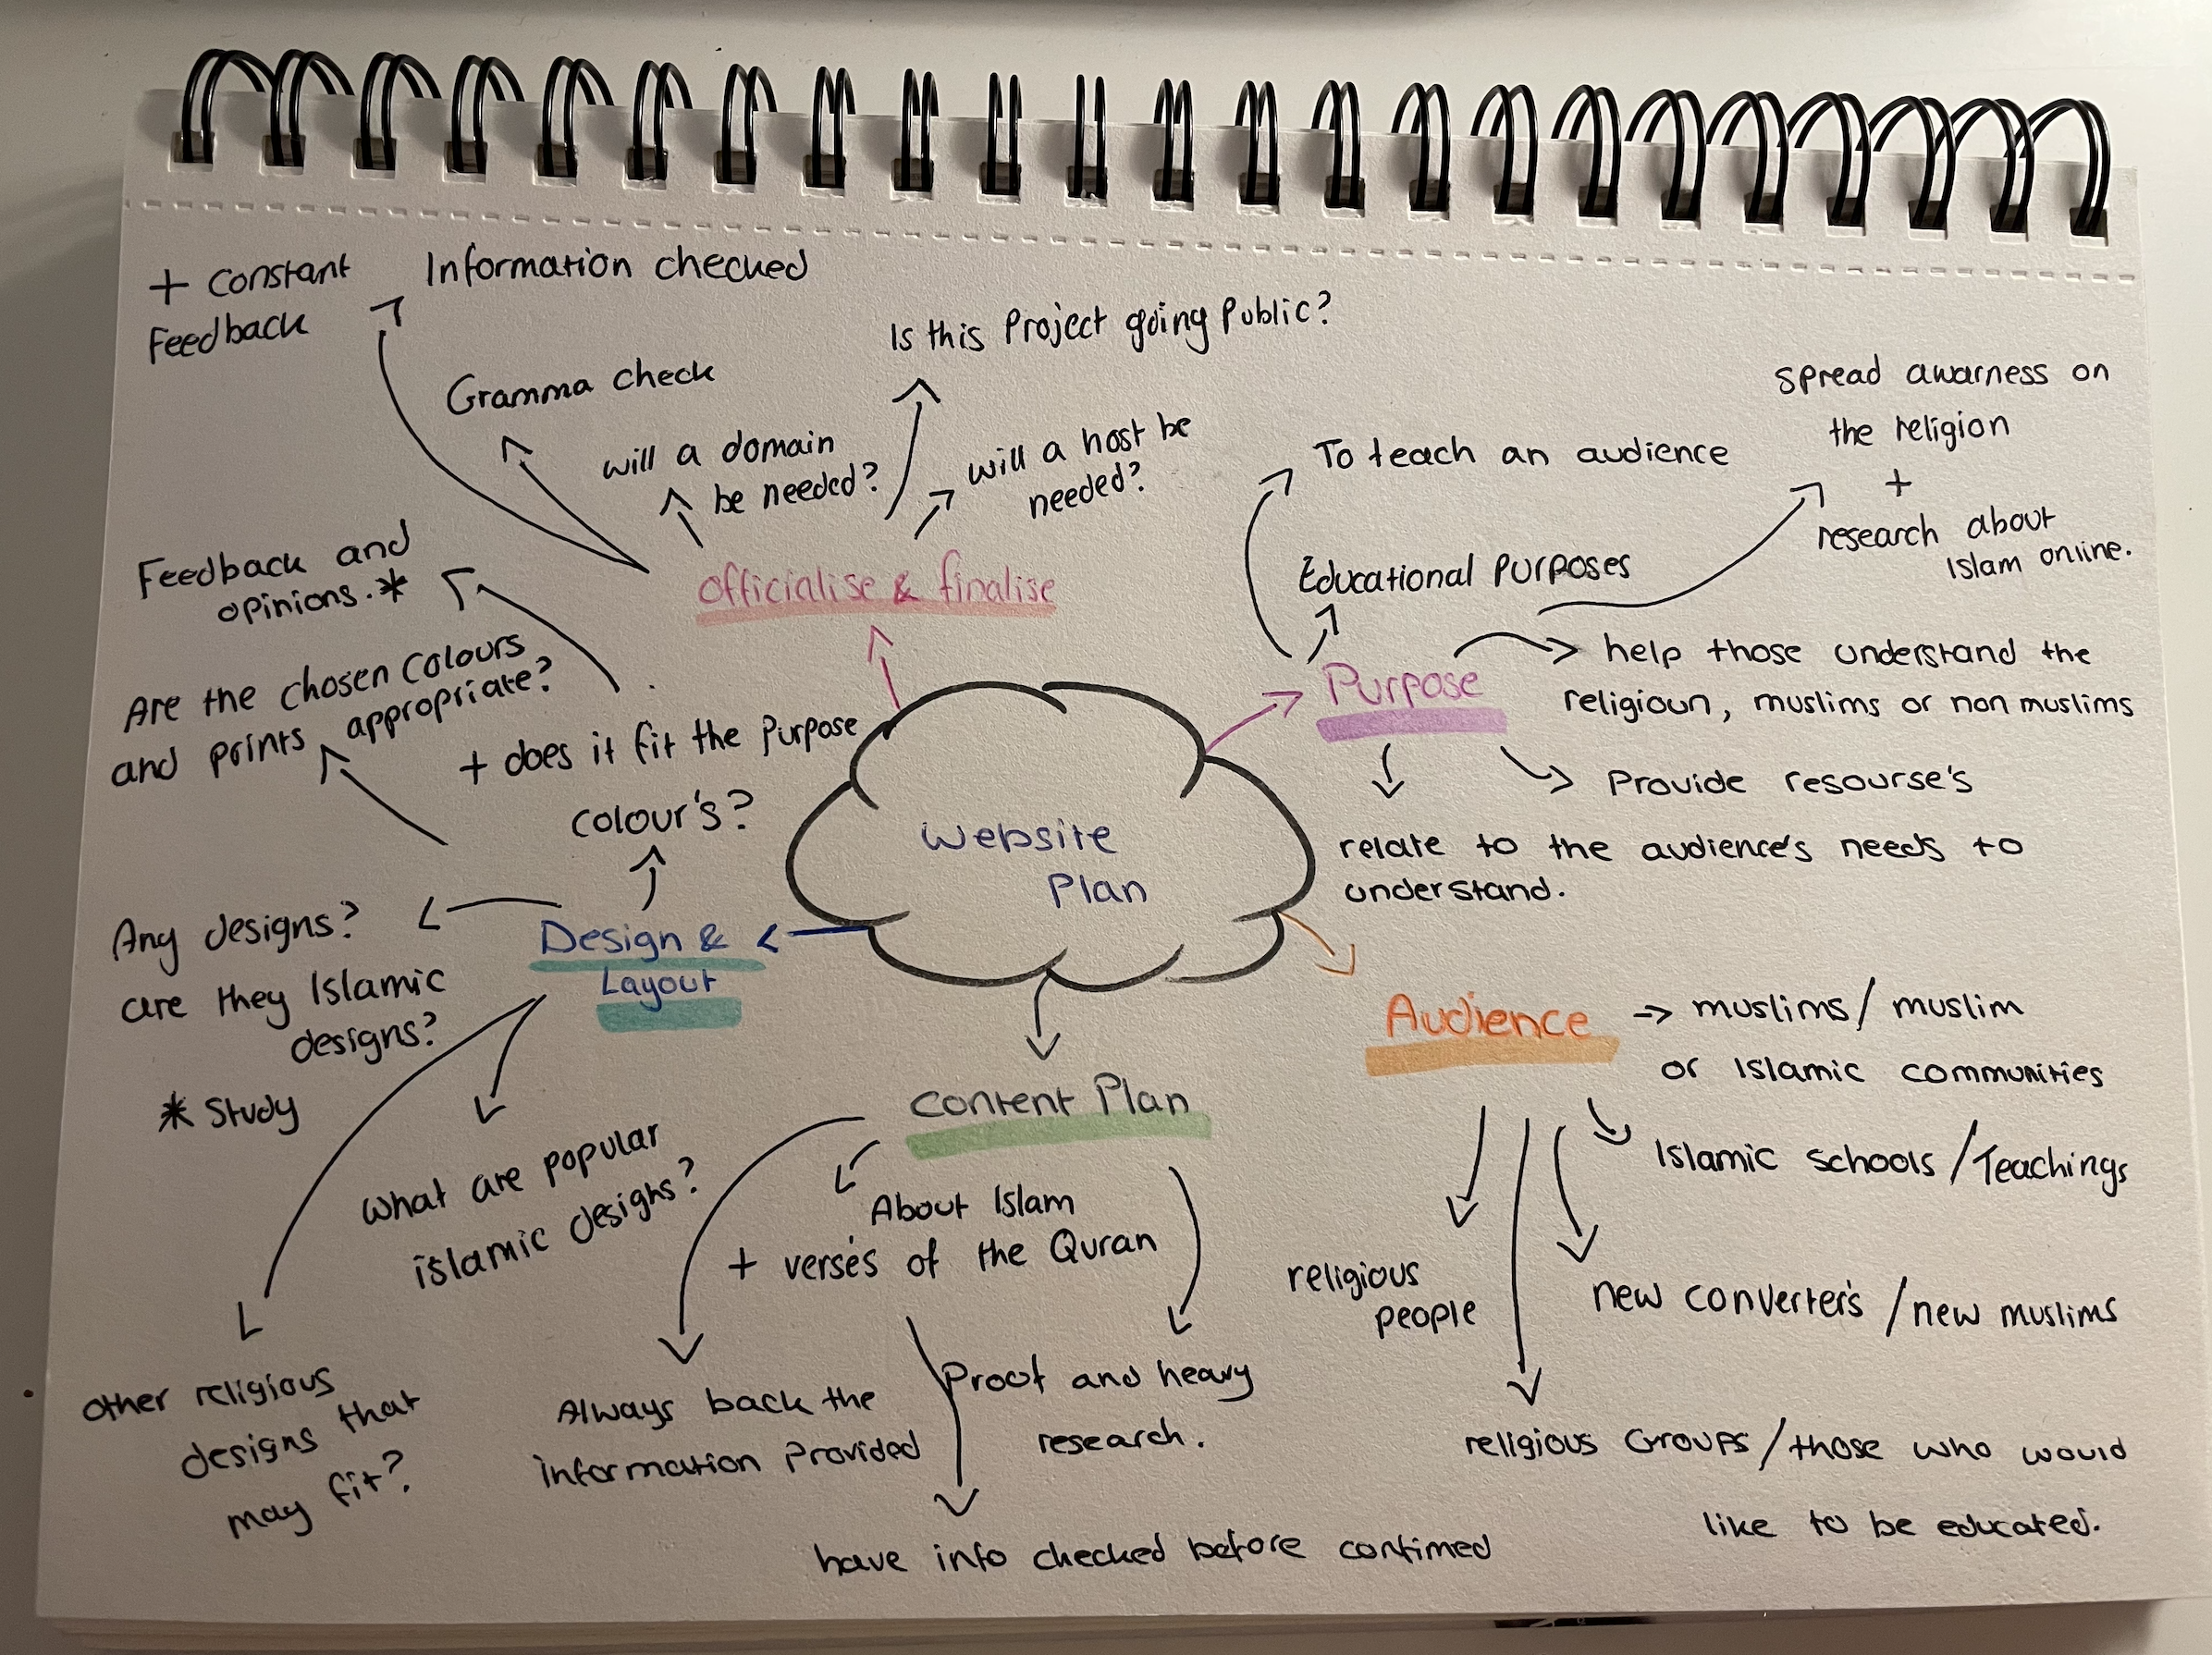 + constant
Feedback
Information checked
Gramma check
Is this Project going Public?
will a domain
be needed?
will a host be
needed?
officialise & finalise
Feedback and
opinions.*
Are the chosen colours
and prints appropriate?
+ does it fit the Purpose
colour's?
Any designs?
are they Islamic
designs?
* Study
Design &
Layout
What are popular
islamic designs?
other religious
designs that
may fit?
Website
Plan
To teach an audience
spread awarness on
the religion
+
research about
Islam online.
Educational Purposes
Purpose
help those understand the
religioun, muslims or non muslims
Provide resourse's
relate to the audience's needs to
understand.
Audience
muslims/ muslim
or Islamic communities
Islamic schools /Teachings
religious
people
new converter's /new muslims
religious Groups /those who would
like to be educated.
content Plan
About Islam
+ verses of the Quran
Always back the
information Provided
Proof and heavy
research.
have info checked before confimed